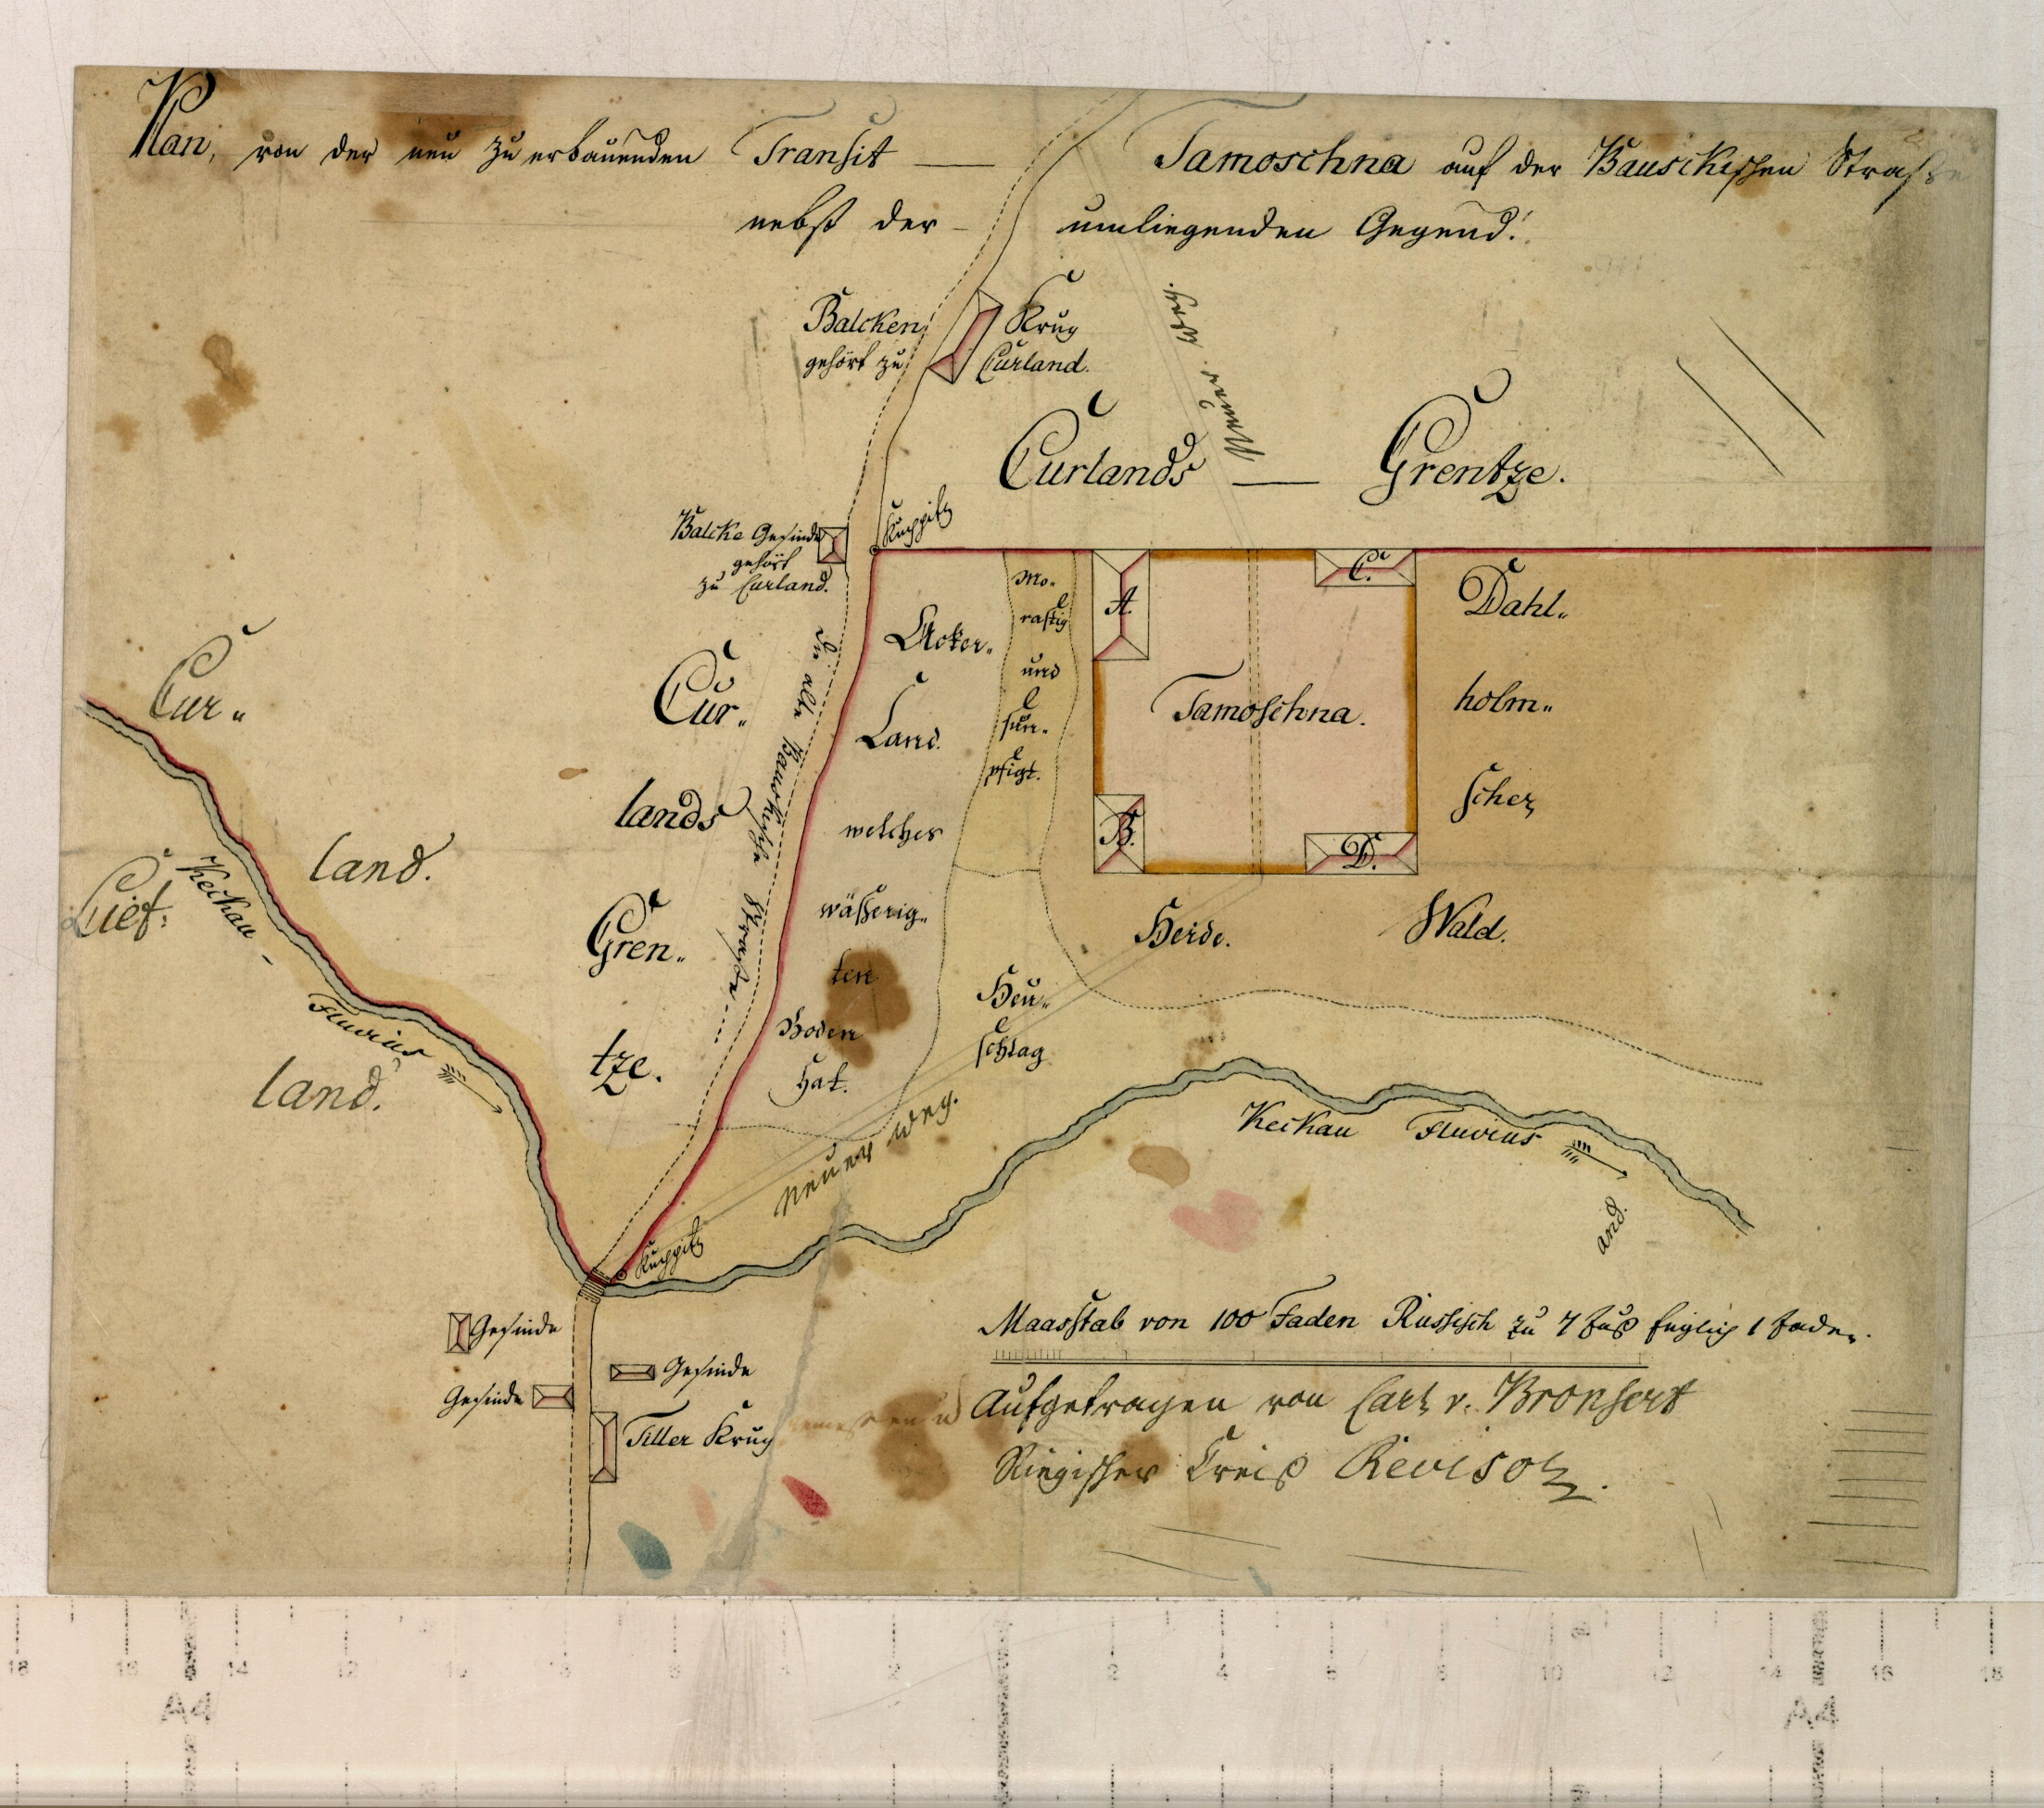 Plan, von der neu zu erbauenden Transit — Tamoschna auf der Bauskischen Strasse
nebst der – umliegenden Gegend!
Balcken Krug
gehört zu Curland.
Neuer Weg.
Curlands — Grentze.
Balcke Gesinde
gehört
zu Curland.
Kuppitz
Die alte Bauskische Strasse
Cur„
land.
Lief:
land.
Keckau –
Fluvius
Cur„
lands
Gren„
tze.
Acker„
Land.
welches
wässerig„
ten
Boden
Hat.
Mo„
rastig
und
sum„
pfigt.
A.
B.
C.
D.
Tamoschna.
Dahl„
holm„
scher
Heide. Wald.
Heu„
schlag
Neuer Weg.
Keckau Fluvius
and.
Kuppitz
Gesinde
Gesinde
Gesinde
Tiller Krug
Maasstab von 100 Faden Russisch zu 7 fuß 1 faden.
Aufgetragen von Carl v. Bronsert
Rigischer Creiß Revisor.
18 16 14 12 10 8 4 2 2 4 6 8 10 12 14 16 18
A4 A4